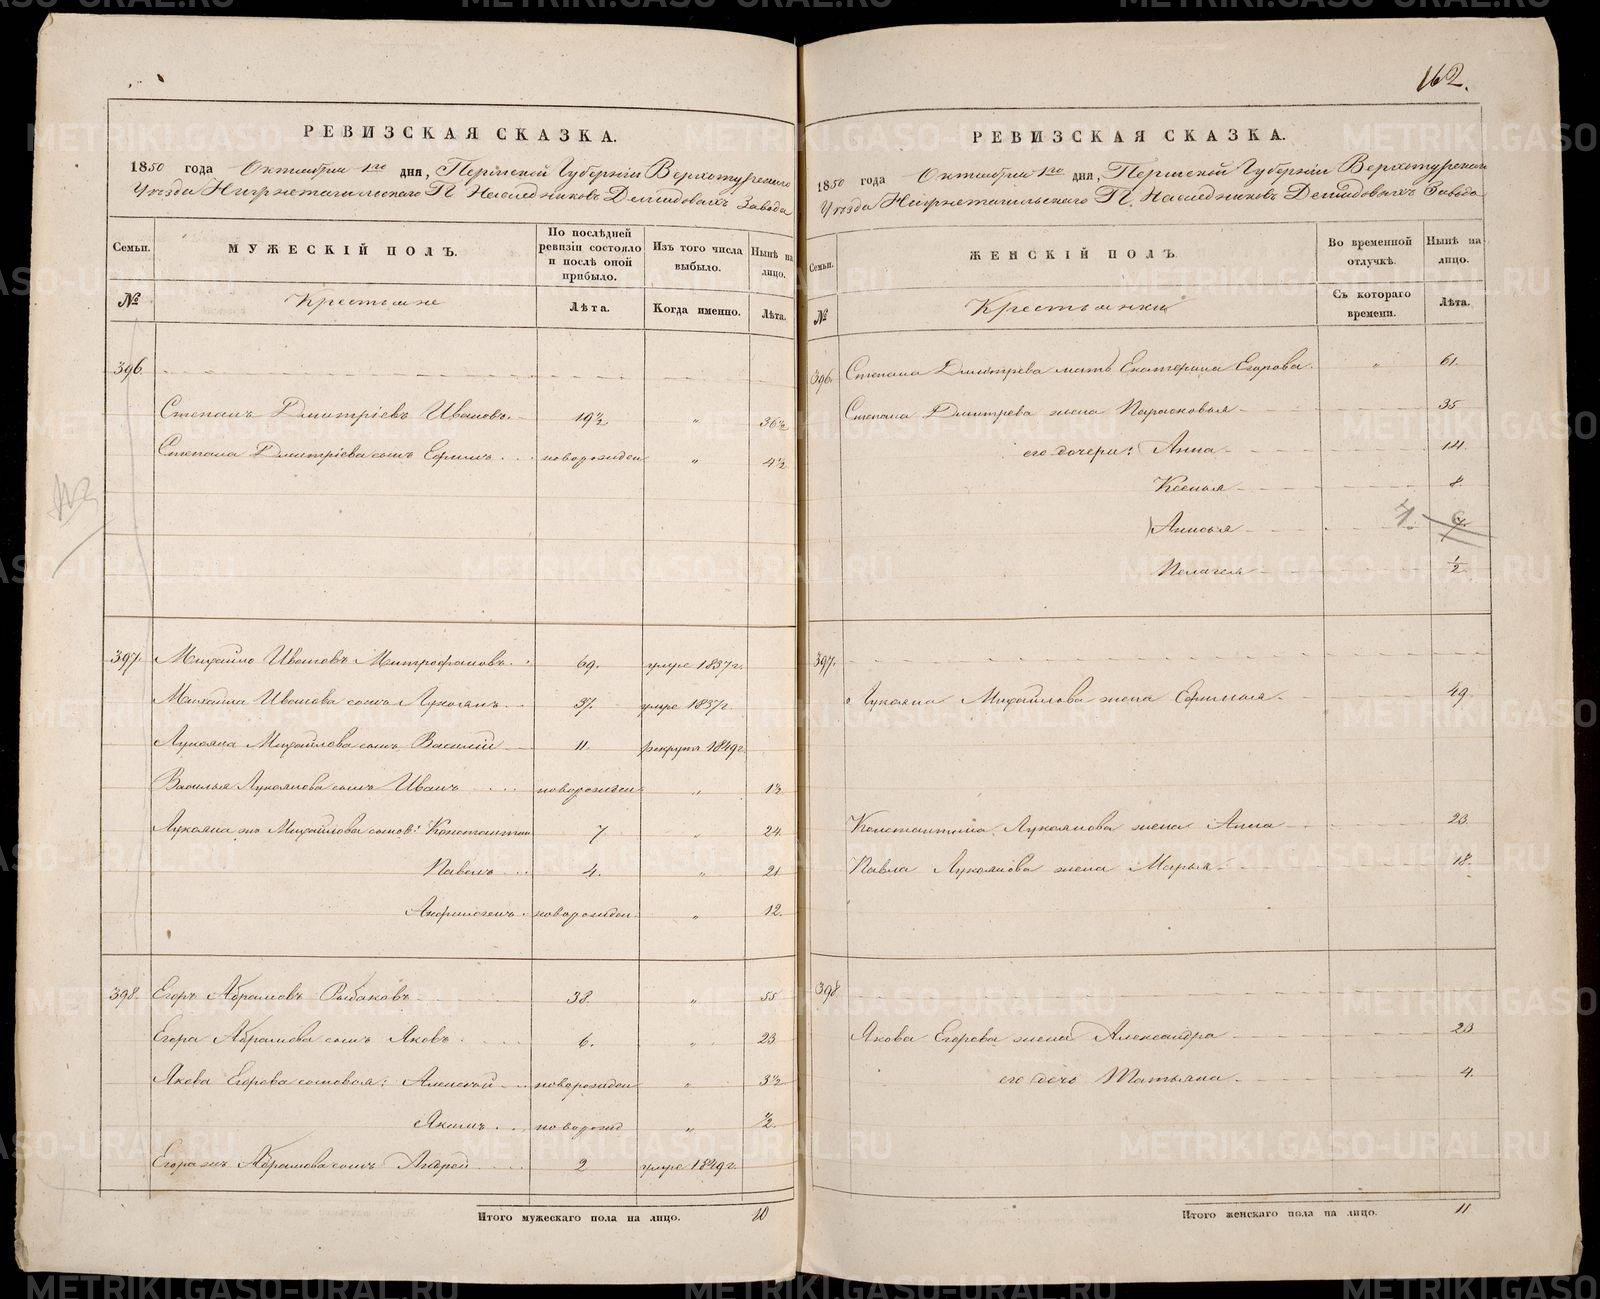 162.
РЕВИЗСКАЯ СКАЗКА.
1850 года Октября 1го дня, Пермской Губернiи Верхотурскаго
Уезда Нижнетагильскаго П. Наследниковъ Демидовыхъ Завода
Семьи.
МУЖЕСКIЙ ПОЛЪ.
По послѣдней ревизiи состояло и послѣ оной прибыло.
Изъ того числа выбыло.
Нынѣ на лицо.
№
Крестьяне
Лѣта.
Когда именно.
Лѣта.
396.
Степанъ Дмитрiевъ Ивановъ. 19½ " 36½
Степана Дмитрiева сынъ Ефимъ. новорожден " 4½
397. Михайло Ивановъ Митрофановъ. 69. умре 1837г.
Михайла Иванова сынъ Лукоянъ. 37. умре 1837г.
Лукояна Михайлова сынъ Василiй 11. рекрутъ 1849г.
Василья Лукоянова сынъ Иванъ новорожден " 1½
Лукояна жъ Михайлова сынов: Константин 7 " 24.
Павелъ 4. " 21
Анфиногенъ новорожден. " 12.
398. Егоръ Абрамовъ Рыбаковъ 38. " 55
Егора Абрамова сынъ Яковъ. 6. " 23
Якова Егорова сыновья: Алексѣй новорожден " 3½
Якимъ новорожд " ½.
Егора жъ Абрамова сынъ Андрей 2 умре 1849г.
Итого мужескаго пола на лицо. 10
РЕВИЗСКАЯ СКАЗКА.
1850 года Октября 1го дня, Пермской Губернiи Верхотурскаго
Уезда Нижнетагильскаго П. Наследниковъ Демидовыхъ Завода
Семьи.
ЖЕНСКIЙ ПОЛЪ
Во временной отлучкѣ.
Нынѣ на лицо.
№
Крестьянки
Съ котораго времени.
Лѣта.
396. Степана Дмитрева мать Екатерина Егорова. " 61.
Степана Дмитрева жена Парасковья 35
его дочери: Анна 14.
Ксенья 8.
Анисья 7.
Пелагея ½
397.
Лукояна Михайлова жена Ефимья 49
Константина Лукоянова жена Анна 23.
Павла Лукоянова жена Марья 18.
398
Якова Егорова жена Александра 23
его дочь Татьяна. 4.
Итого женскаго пола на лицо. 11
METRIKI.GASO-URAL.RU